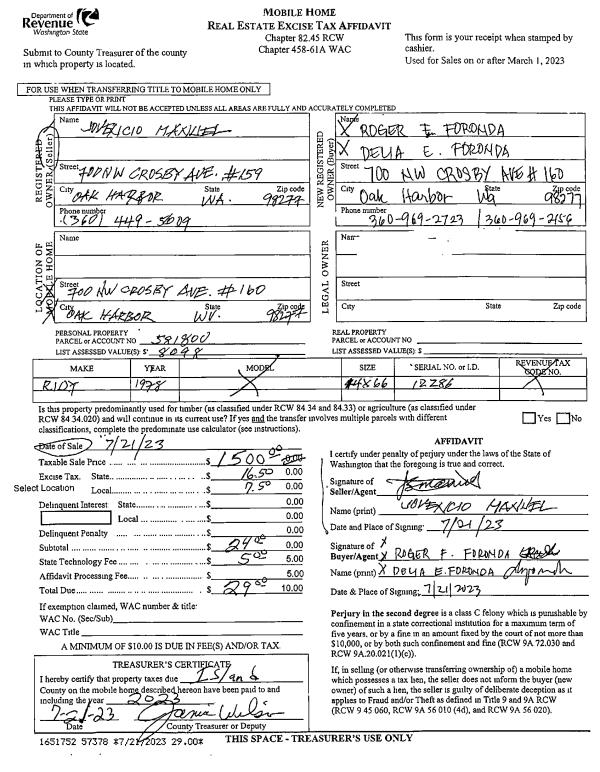 Department of
Revenue
Washington State
MOBILE HOME
REAL ESTATE EXCISE TAX AFFIDAVIT
Chapter 82.45 RCW
Chapter 458-61A WAC
Submit to County Treasurer of the county
in which property is located.
This form is your receipt when stamped by
cashier.
Used for Sales on or after March 1, 2023
FOR USE WHEN TRANSFERRING TITLE TO MOBILE HOME ONLY
PLEASE TYPE OR PRINT
THIS AFFIDAVIT WILL NOT BE ACCEPTED UNLESS ALL AREAS ARE FULLY AND ACCURATELY COMPLETED
REGISTERED
OWNER (Seller)
Name
JOVERICIO MAXWEL
Street
700 NW CROSBY AVE. #159
City State Zip code
OAK HARBOR WA. 98277
Phone number
(360) 449-5009
NEW REGISTERED
OWNER (Buyer)
Name
X ROGER F. FORONDA
X DELIA E. FORONDA
Street 700 NW CROSBY AVE # 160
City State Zip code
Oak Harbor Wa 98277
Phone number
360-969-2723 360-969-2156
LOCATION OF
MOBILE HOME
Name
Street
700 NW CROSBY AVE. #160
City State Zip code
OAK HARBOR WV. 98277
LEGAL OWNER
Name
Street
City State Zip code
PERSONAL PROPERTY
PARCEL or ACCOUNT NO 581800
LIST ASSESSED VALUE(S): $ 8098
REAL PROPERTY
PARCEL or ACCOUNT NO
LIST ASSESSED VALUE(S): $
MAKE YEAR MODEL SIZE SERIAL NO. or I.D. REVENUE TAX CODE NO.
RIDT 1978 14X66 12286
Is this property predominantly used for timber (as classified under RCW 84 34 and 84.33) or agriculture (as classified under
RCW 84 34.020) and will continue in its current use? If yes and the transfer involves multiple parcels with different
classifications, complete the predominate use calculator (see instructions).
Yes No
Date of Sale 7/21/23
Taxable Sale Price $ 1500 00 0.00
Excise Tax. State $ 16.50 0.00
Select Location Local $ 7.50 0.00
Delinquent Interest State $ 0.00
Local $ 0.00
Delinquent Penalty $ 0.00
Subtotal $ 24 00 0.00
State Technology Fee $ 5 00 5.00
Affidavit Processing Fee $ 5.00
Total Due $ 29 00 10.00
If exemption claimed, WAC number & title:
WAC No. (Sec/Sub)
WAC Title
A MINIMUM OF $10.00 IS DUE IN FEE(S) AND/OR TAX.
AFFIDAVIT
I certify under penalty of perjury under the laws of the State of
Washington that the foregoing is true and correct.
Signature of
Seller/Agent
Name (print) JOVERICIO MAXWEL
Date and Place of Signing: 7/21/23
Signature of X
Buyer/Agent X ROGER F. FORONDA
Name (print) X DELIA E. FORONDA
Date & Place of Signing: 7/21/2023
Perjury in the second degree is a class C felony which is punishable by
confinement in a state correctional institution for a maximum term of
five years, or by a fine in an amount fixed by the court of not more than
$10,000, or by both such confinement and fine (RCW 9A 72.030 and
RCW 9A.20.021(1)(c)).
If, in selling (or otherwise transferring ownership of) a mobile home
which possesses a tax lien, the seller does not inform the buyer (new
owner) of such a lien, the seller is guilty of deliberate deception as it
applies to Fraud and/or Theft as defined in Title 9 and 9A RCW
(RCW 9 45 060, RCW 9A 56 010 (4d), and RCW 9A 56 020).
TREASURER'S CERTIFICATE
I hereby certify that property taxes due Island
County on the mobile home described hereon have been paid to and
including the year 2023
7-21-23
Date County Treasurer or Deputy
1651752 57378 *7/21/2023 29.00*
THIS SPACE - TREASURER'S USE ONLY